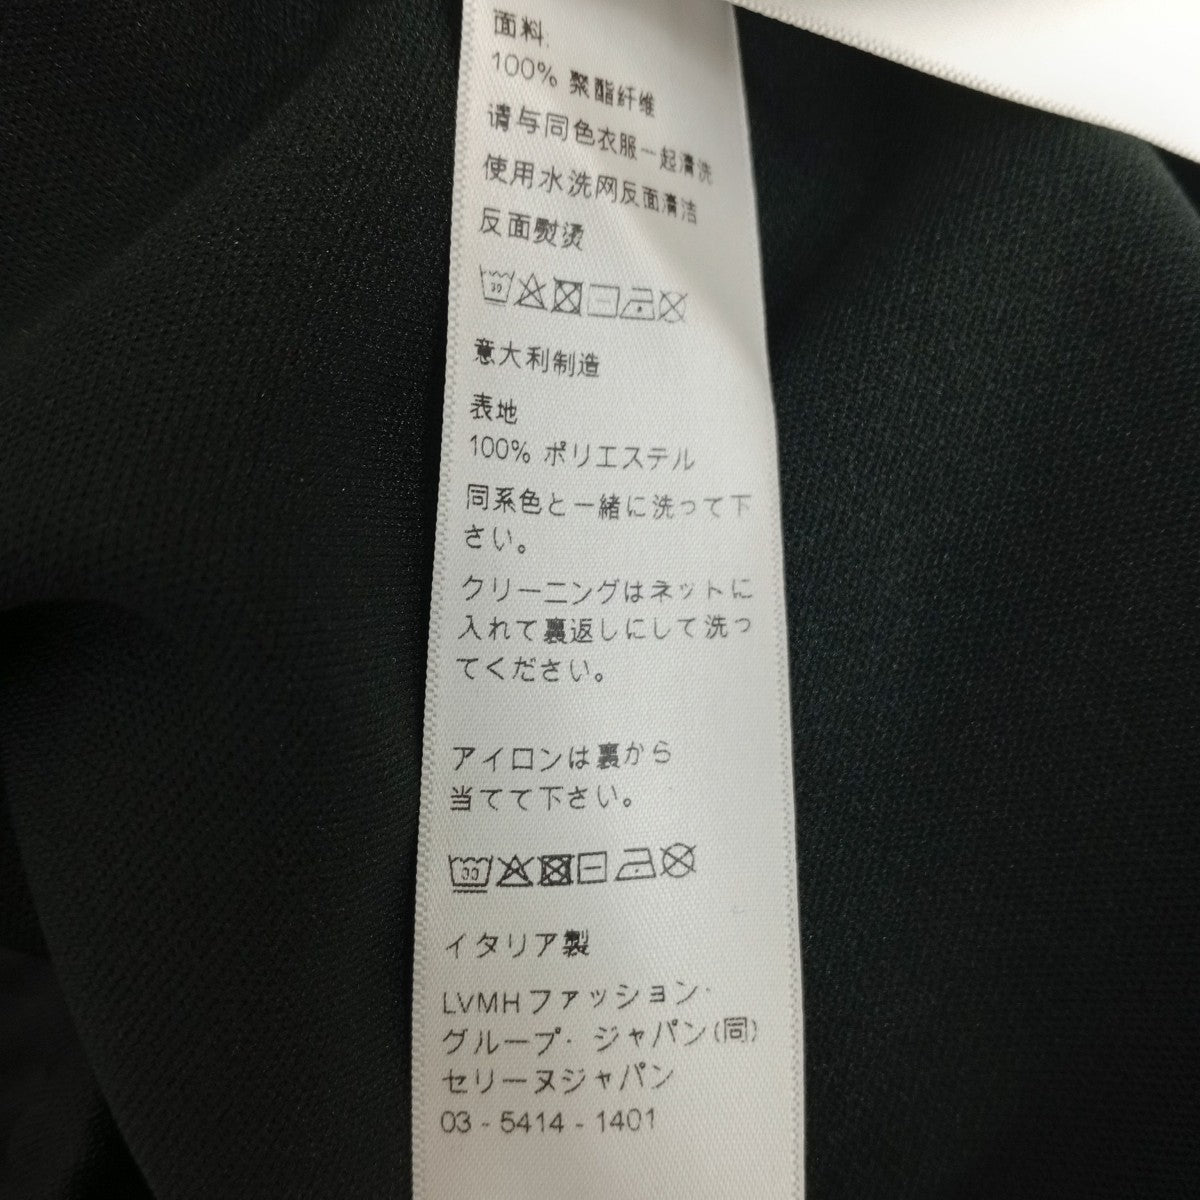 面料:
100% 聚酯纤维
请与同色衣服一起清洗
使用水洗网反面清洁
反面熨烫
30
意大利制造
表地
100% ポリエステル
同系色と一緒に洗って下
さい。
クリーニングはネットに
入れて裏返しにして洗っ
てください。
アイロンは裏から
当てて下さい。
30
イタリア製
LVMHファッション・
グループ・ジャパン(同)
セリーヌジャパン
03 - 5414 - 1401